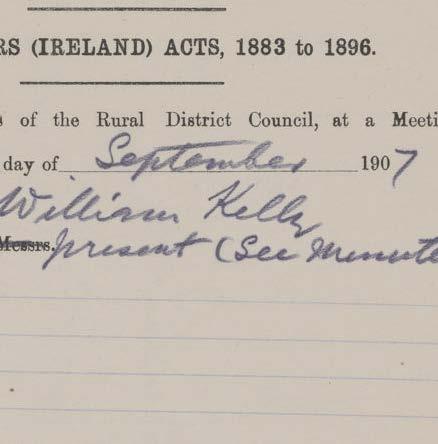 RS (IRELAND) ACTS, 1883 to 1896.
s of the Rural District Council, at a Meeti
day of September 1907
William Kelly
Messrs. present (See Minute